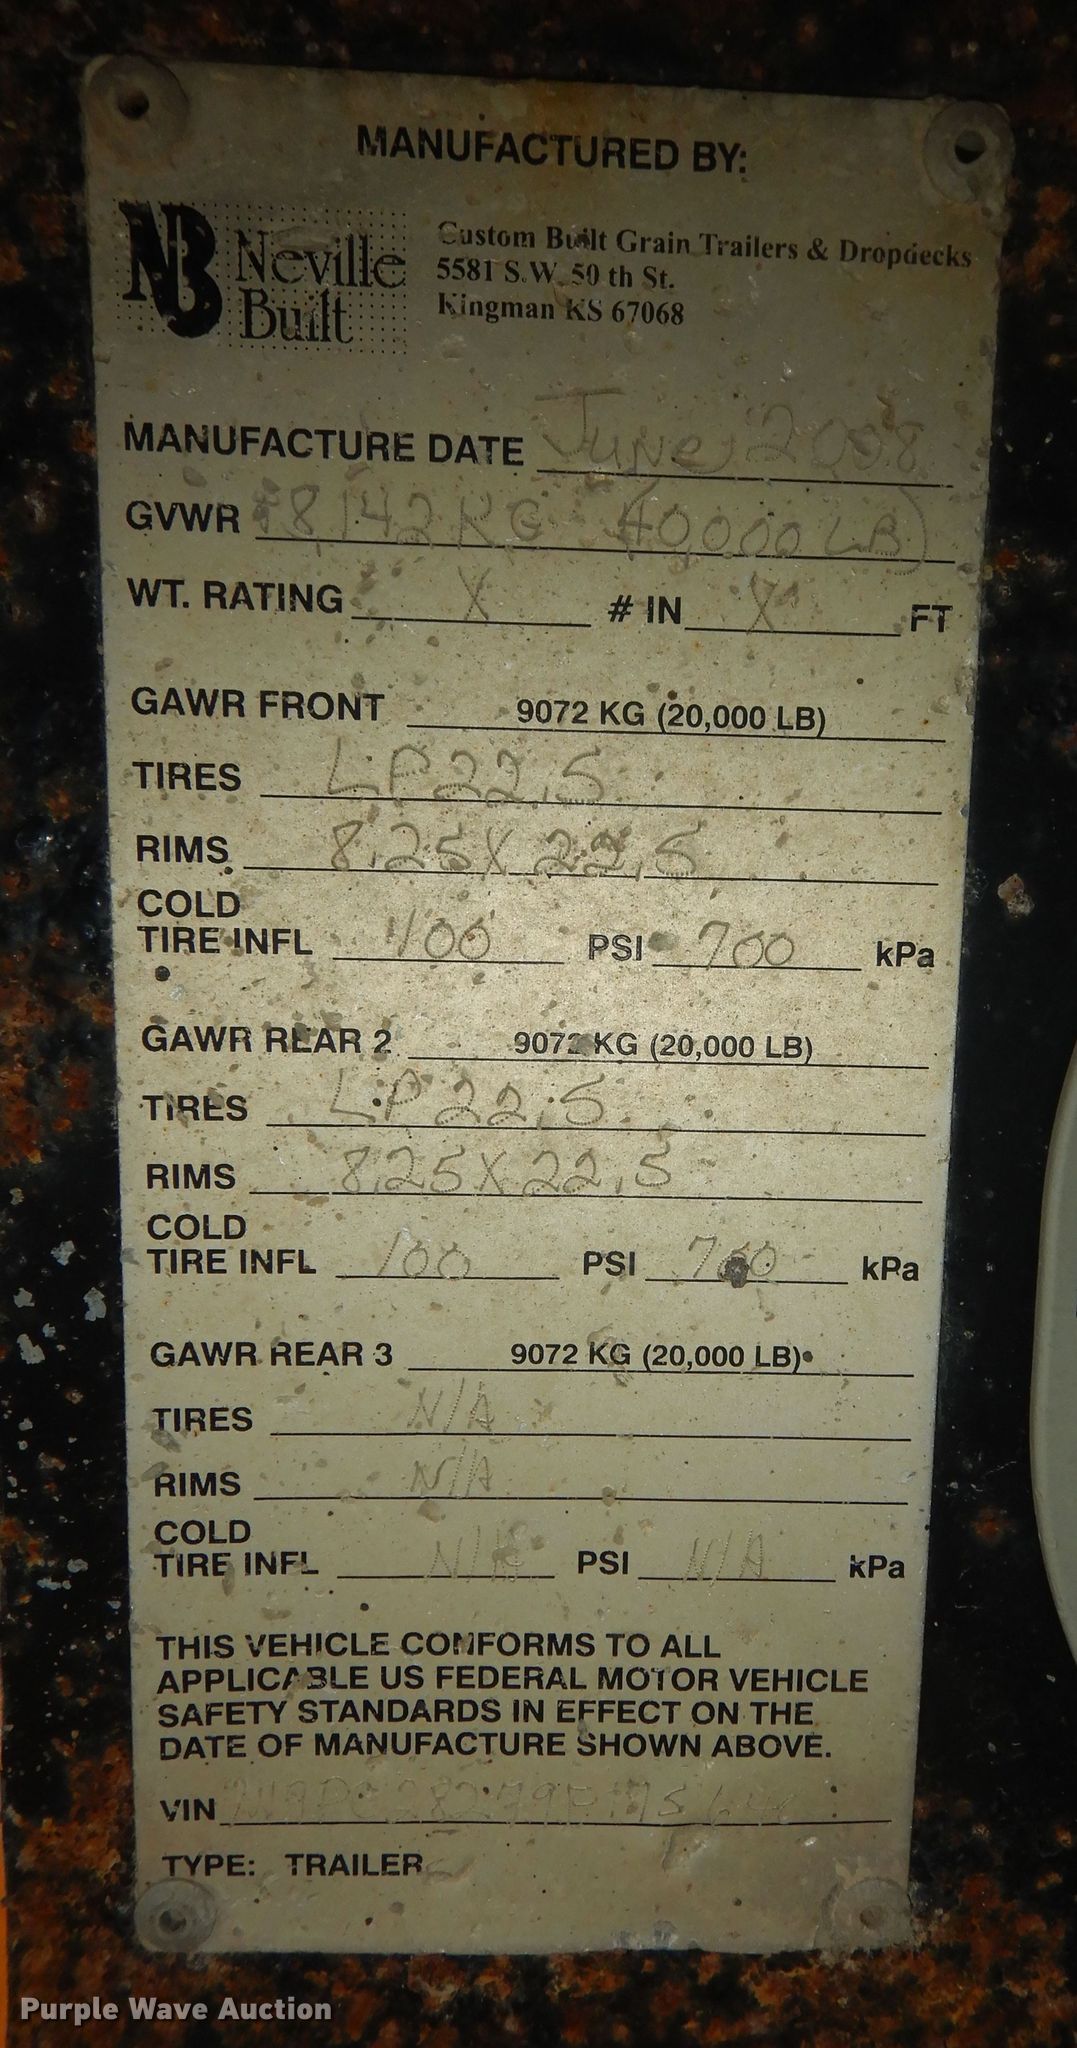 MANUFACTURED BY:
NB Neville Built
Custom Built Grain Trailers & Dropdecks
5581 S.W. 50 th St.
Kingman KS 67068
MANUFACTURE DATE June 2008
GVWR 18,142 KG (40,000 LB)
WT. RATING X # IN X FT
GAWR FRONT 9072 KG (20,000 LB)
TIRES LP22.5
RIMS 8.25X22.5
COLD
TIRE INFL 100 PSI 700 kPa
GAWR REAR 2 9072 KG (20,000 LB)
TIRES LP22.5
RIMS 8.25X22.5
COLD
TIRE INFL 100 PSI 700 kPa
GAWR REAR 3 9072 KG (20,000 LB)
TIRES N/A
RIMS N/A
COLD
TIRE INFL N/A PSI N/A kPa
THIS VEHICLE CONFORMS TO ALL
APPLICABLE US FEDERAL MOTOR VEHICLE
SAFETY STANDARDS IN EFFECT ON THE
DATE OF MANUFACTURE SHOWN ABOVE.
VIN
TYPE: TRAILER
Purple Wave Auction